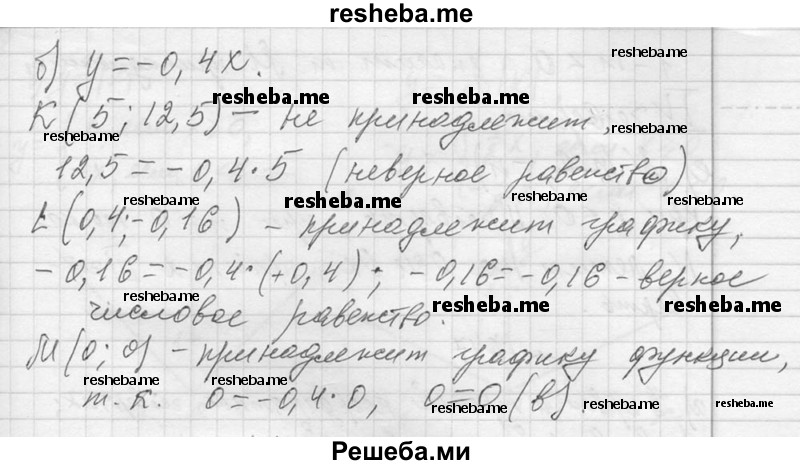 resheba.me
б) y = -0,4x.
resheba.me
resheba.me resheba.me
K(5; 12,5) - не принадлежит,
resheba.me resheba.me
12,5 = -0,4·5 (неверное равенство)
resheba.me resheba.me resheba.me resheba.me
L(0,4; -0,16) - принадлежит графику,
-0,16 = -0,4·(+0,4); -0,16 = -0,16 - верное
resheba.me resheba.me resheba.me
числовое равенство.
M(0; 0) - принадлежит графику функции,
resheba.me resheba.me resheba.me resheba.me
т.к. 0 = -0,4·0, 0=0 (в).
Решеба.ми